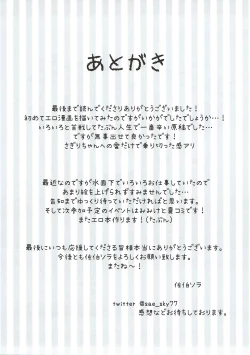 あとがき
最後まで読んでくださりありがとうございました!
初めてエロ漫画を描いてみたのですがいかがでしたでしょうか…!
いろいろと苦戦してたぶん人生で一番辛い原稿でした…
ですが無事出せて良かったです!
さぎりちゃんへの愛だけで乗り切った感アリ
最近なのですが水面下でいろいろお仕事していたので
あまり絵を上げられずすみませんでした…
告知までゆっくり待っていただければと思います。
そして次参加予定のイベントはみみけと夏コミです!
またエロ本作ります!(たぶん)
最後にいつも応援してくださる皆様本当にありがとうございます。
今後とも佐伯ソラをよろしくお願い致します。
またね〜!
佐伯ソラ
twitter @sae_sky77
感想などお待ちしております。